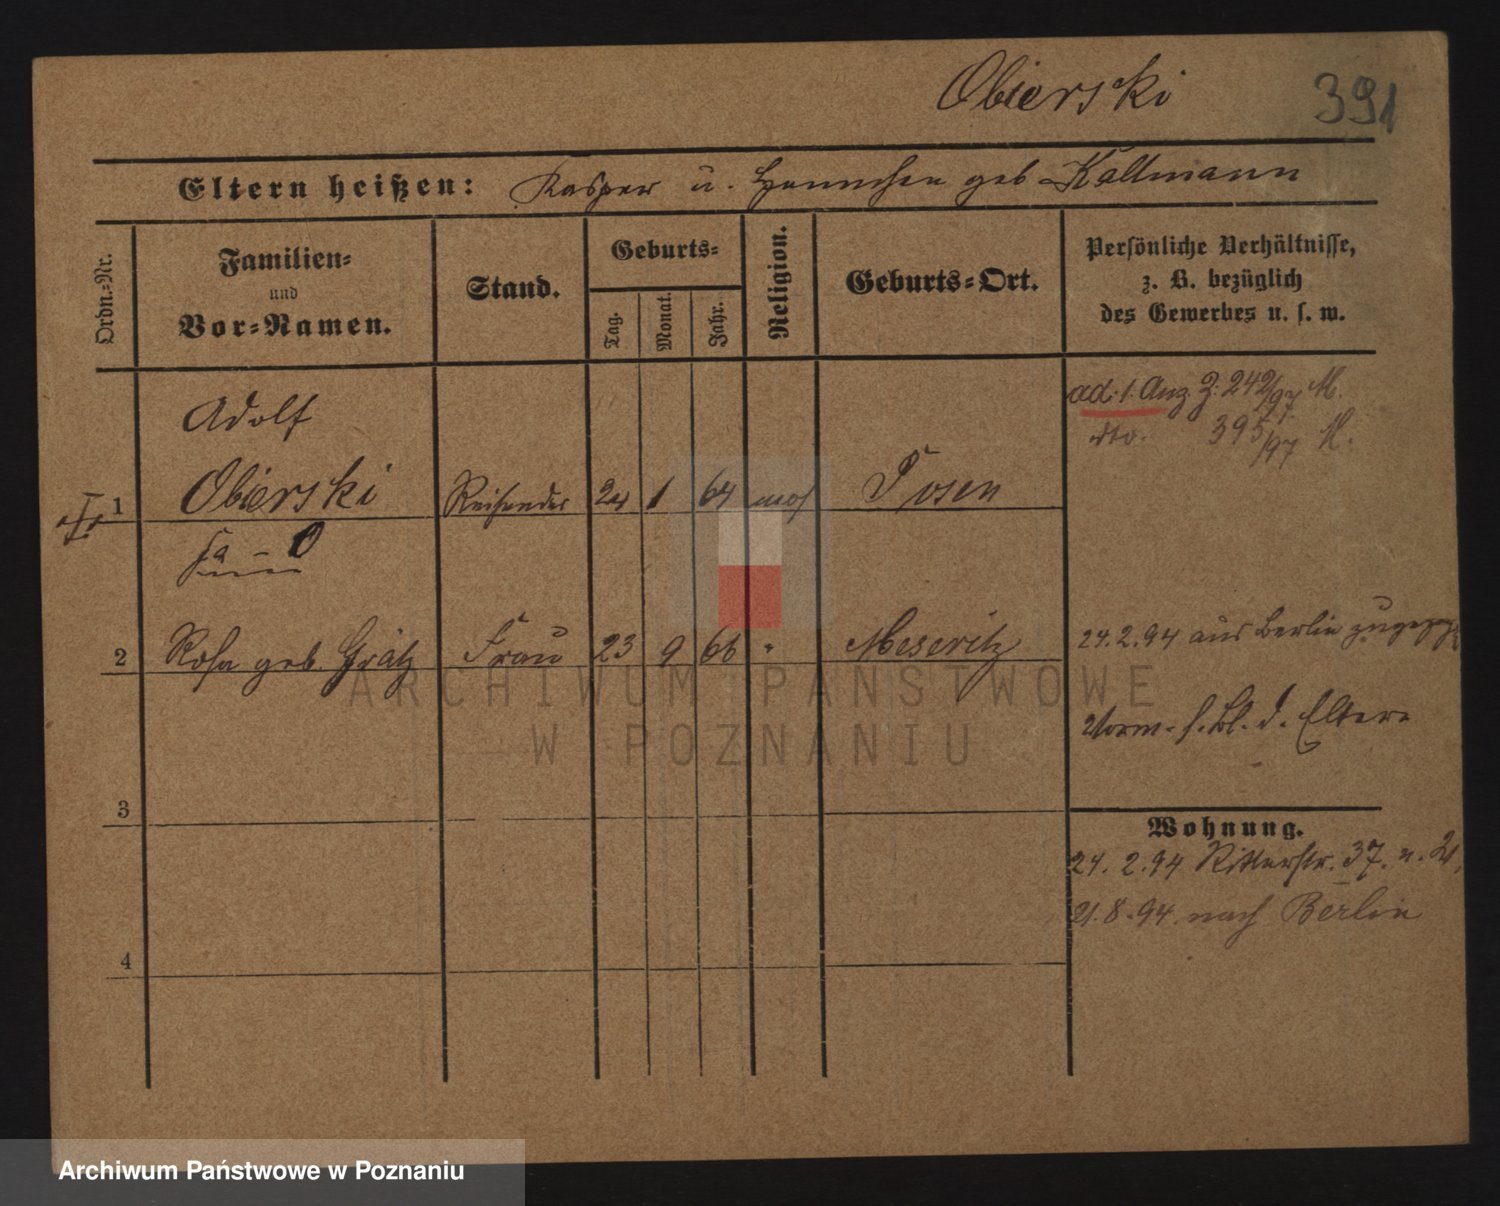 Obierski
391
Eltern heißen: Kasper u. Hannchen geb Kallmann
Ordn.-Nr.
Familien-
und
Vor-Namen.
Stand.
Geburts-
Tag.
Monat.
Jahr.
Religion.
Geburts-Ort.
Persönliche Verhältnisse,
z. B. bezüglich
des Gewerbes u. s. w.
ad. 1. Anz. Z. 242/97 M.
dto. 395/97 M.
Adolf
1 Obierski Reisender 24 1 64 mos Posen
2 Rosa geb. Grätz Frau 23 9 66 " Meseritz
24.2.94 aus Berlin zugezg.
Vorm. s. Bl. d. Eltern
3
Wohnung.
24. 2. 94 Ritterstr. 37.
21. 8. 94. nach Berlin
4
ARCHIWUM PAŃSTWOWE
W POZNANIU
Archiwum Państwowe w Poznaniu